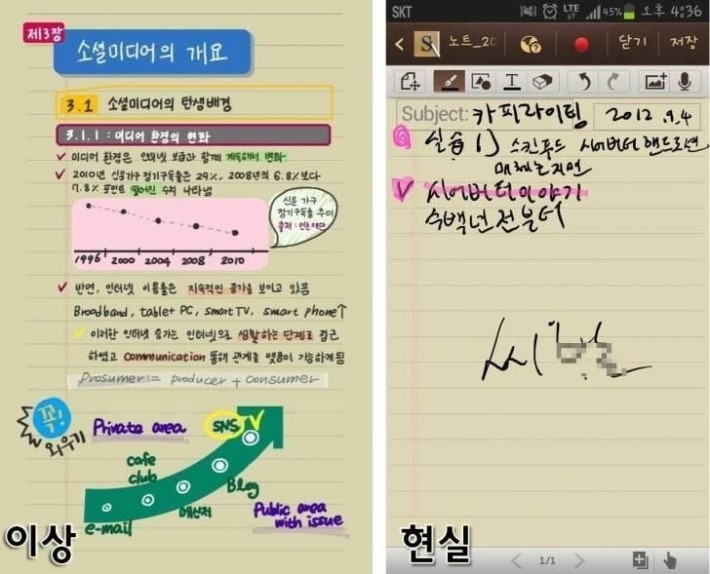 제3장
소셜미디어의 개요
3.1 소셜미디어의 탄생배경
3.1.1 : 미디어 환경의 변화
미디어 환경은 인터넷 보급과 함께 계속해서 변화
2010년 신문가구 정기구독률은 29%, 2008년의 6.8%보다
7.8% 포인트 떨어진 수치 나타냄
신문 가구
정기구독률 추이
출처 : 언론재단
1996 2000 2004 2008 2010
반면, 인터넷 이용률은 지속적인 증가를 보이고 있음
Broadband, tablet PC, smart TV, smart phone↑
이러한 인터넷 증가는 인터넷으로 생활하는 단계로 접근
하였고 communication 통해 관계를 맺음이 가능하게됨
Prosumer = producer + consumer
꼭!
외우기
Private area
SNS
TV
cafe
club
Blog
메신저
e-mail
Public area
with issue
이상
SKT
LTE
45%
오후 4:36
S
노트_20
닫기
저장
T
Subject: 카피라이팅
2012. 9. 4
실습 1) 스킨푸드 시어버터 핸드로션
매체는 지면
시어버터 이야기
수백년 전부터
1/1
현실